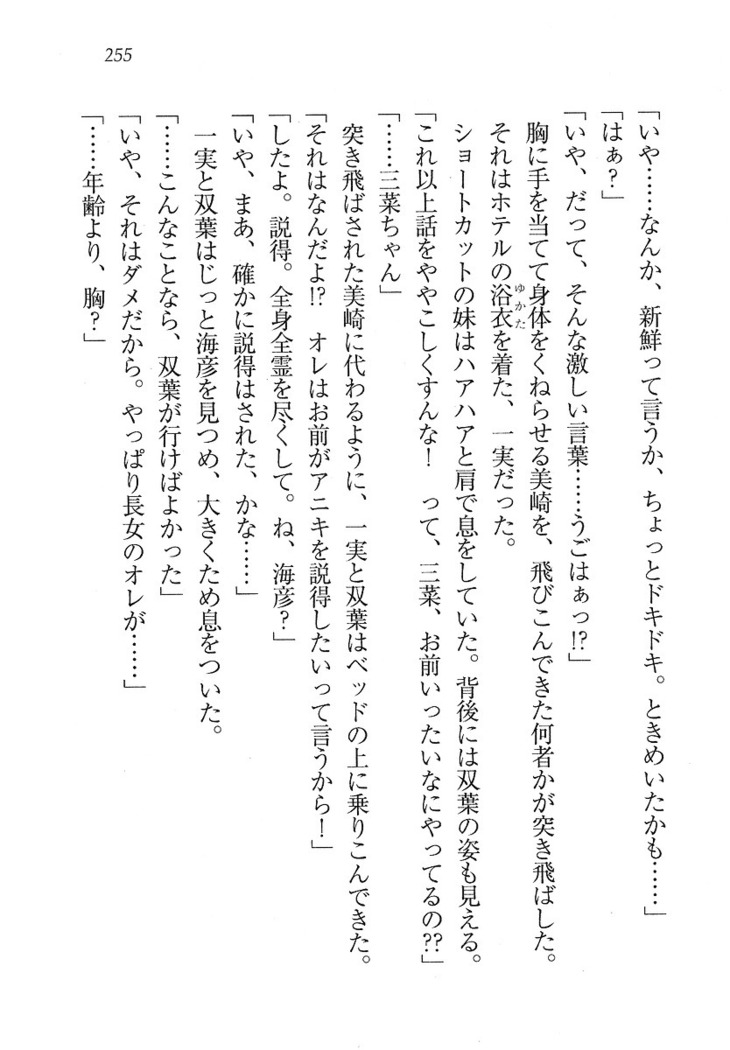 255
「いや……なんか、新鮮って言うか、ちょっとドキドキ。ときめいたかも……」
「はぁ？」
「いや、だって、そんな激しい言葉……うごはぁっ!?」
胸に手を当てて身体をくねらせる美崎を、飛びこんできた何者かが突き飛ばした。
それはホテルの浴衣ゆかたを着た、一実だった。
ショートカットの妹はハアハアと肩で息をしていた。背後には双葉の姿も見える。
「これ以上話をややこしくすんな！　って、三菜、お前いったいなにやってるの??」
「……三菜ちゃん」
突き飛ばされた美崎に代わるように、一実と双葉はベッドの上に乗りこんできた。
「それはなんだよ!?　オレはお前がアニキを説得したいって言うから！」
「したよ。説得。全身全霊を尽くして。ね、海彦？」
「いや、まあ、確かに説得はされた、かな……」
一実と双葉はじっと海彦を見つめ、大きくため息をついた。
「……こんなことなら、双葉が行けばよかった」
「いや、それはダメだから。やっぱり長女のオレが……」
「……年齢より、胸？」